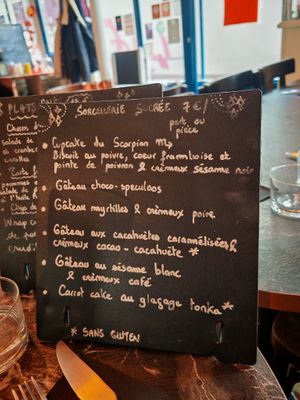 PLATS
SORCELLERIE SUCRÉE 7€/
part ou
pièce
• Cupcake du Scorpion ♏
Biscuit au poivre, coeur framboise et
pointe de poivron & crémeux sésame noir
• Gâteau choco-speculoos
• Gâteau myrtilles & crémeux poire
• Gâteau aux cacahuètes caramélisées &
crémeux cacao - cacahuète *
• Gâteau au sésame blanc
& crémeux café
• Carrot cake au glaçage tonka *
* SANS GLUTEN